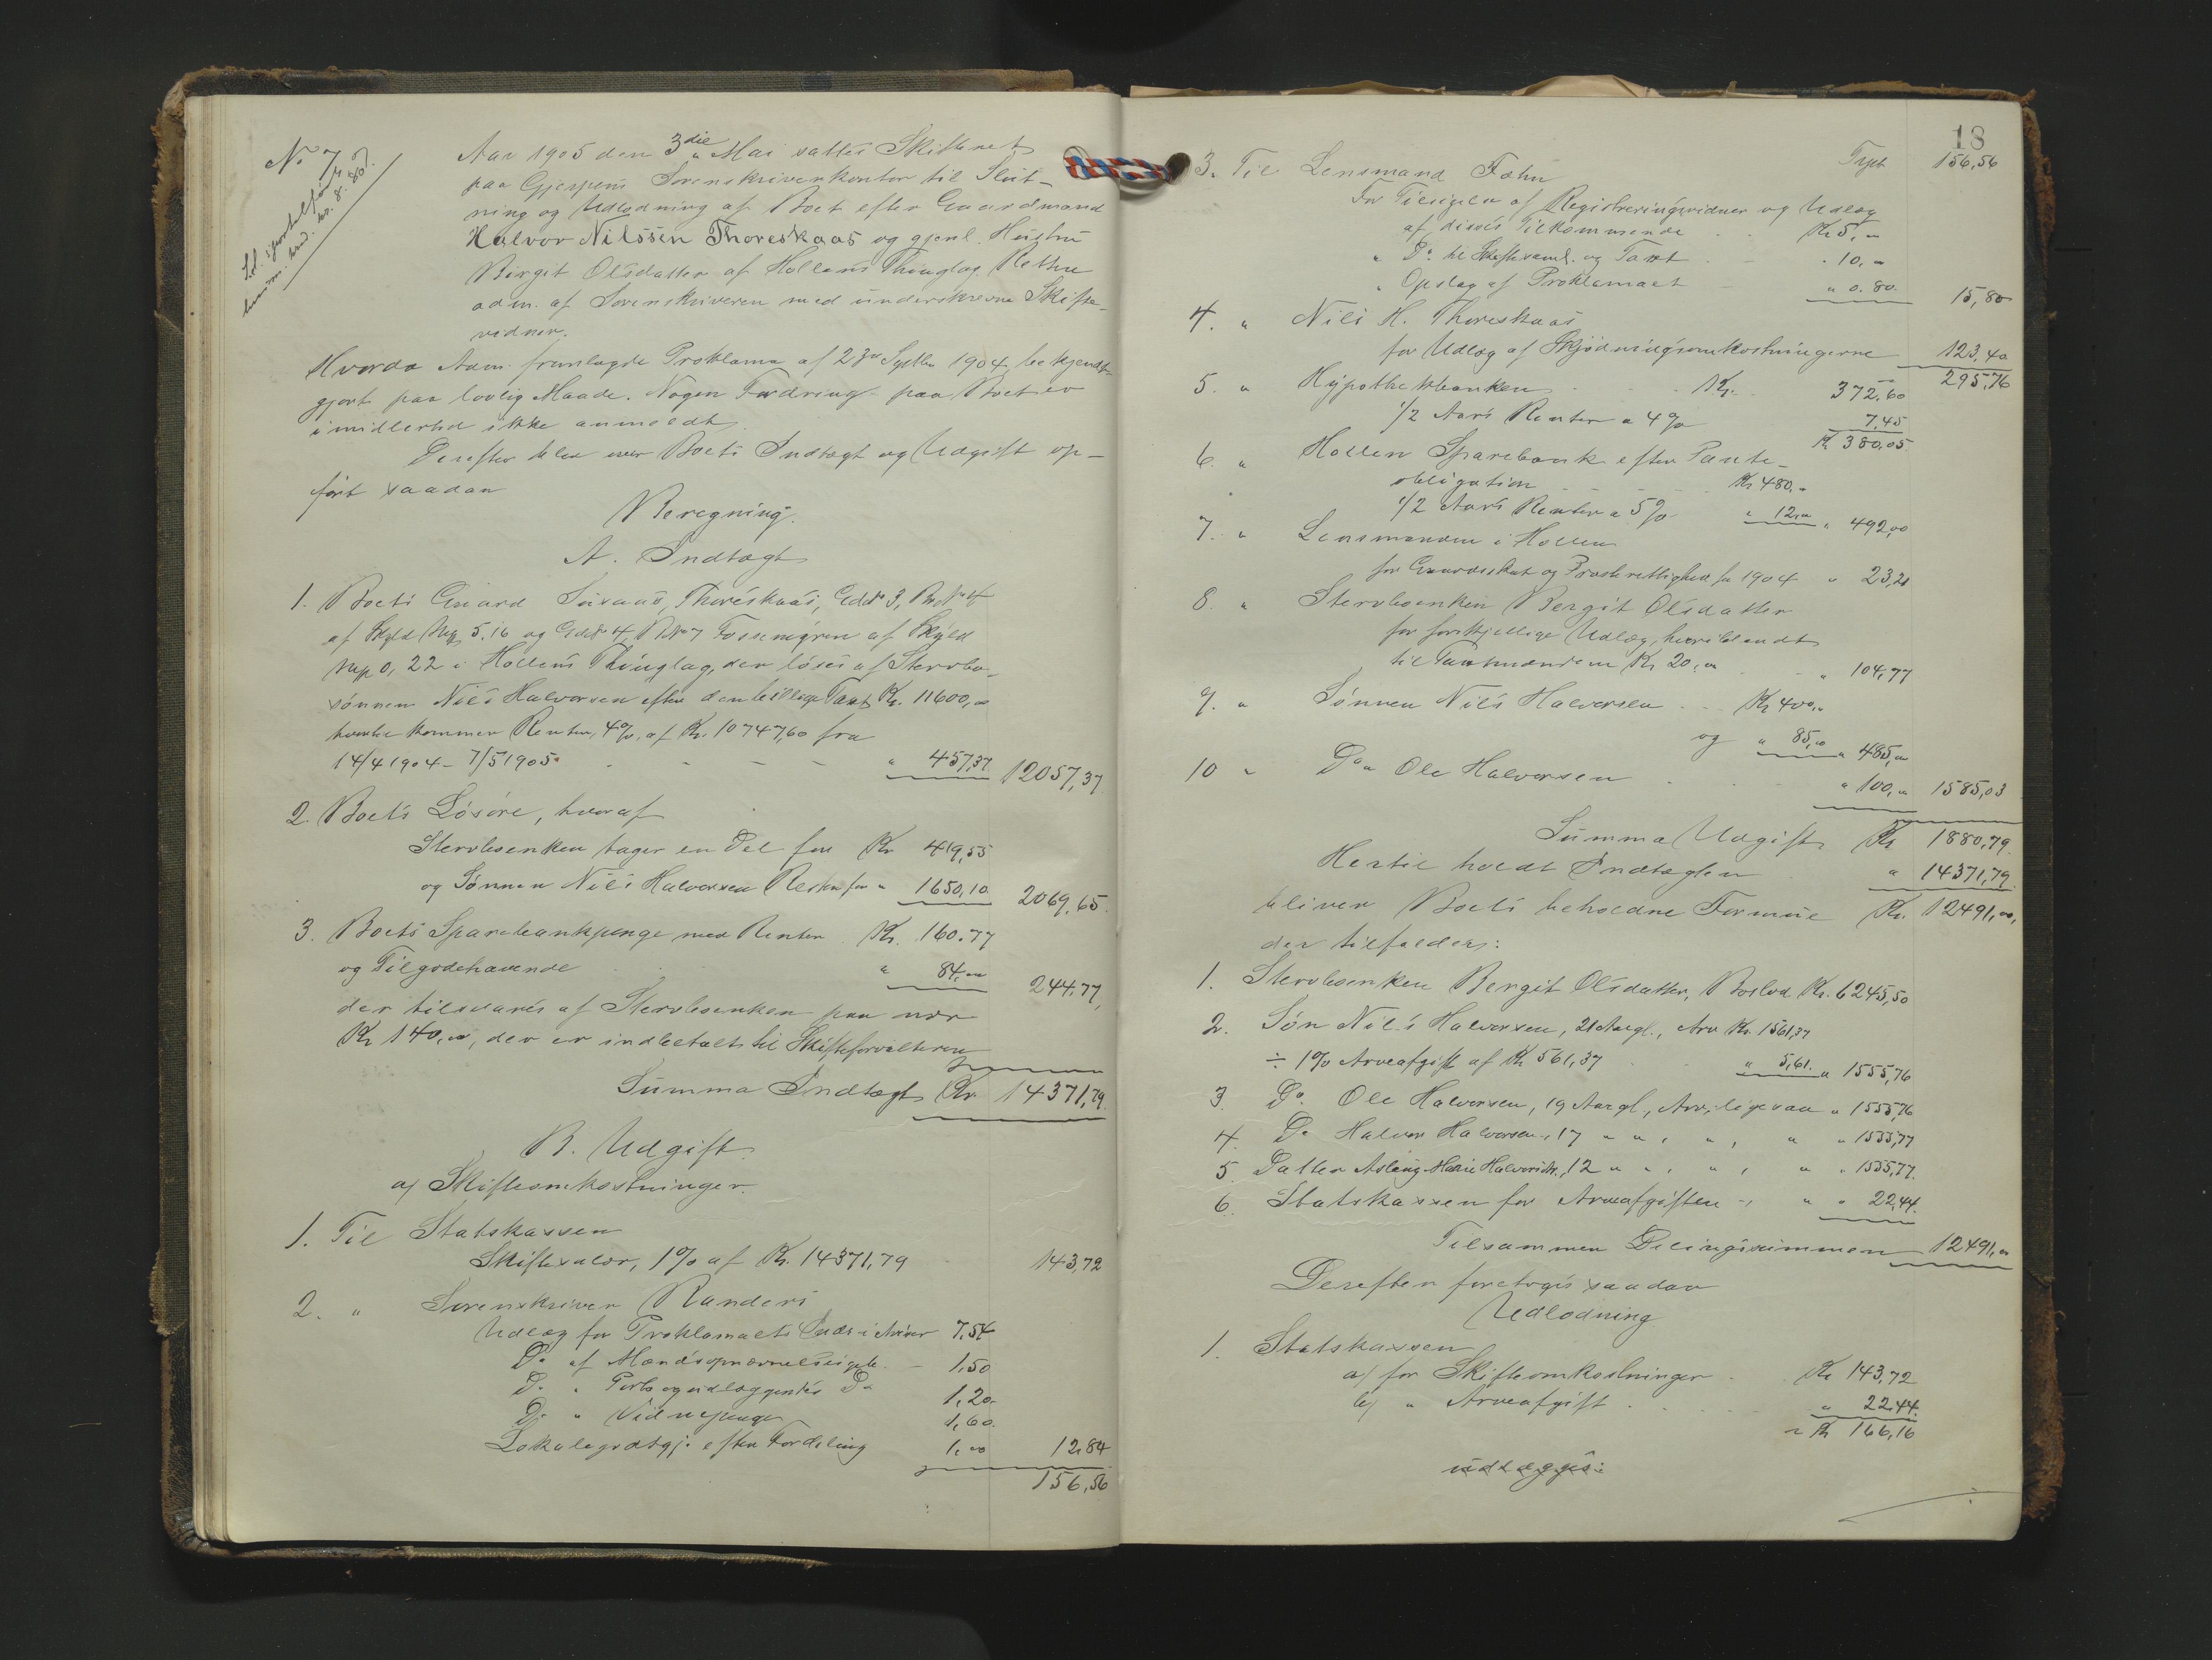 No 7
Aar 1905 den 3die Mai sattes Skifteret
paa Gjerpens Sorenskriverkontor til Slut-
ning og Udlodning af Boet efter Gaardmand
Halvor Nilssen Thoreskaas og gjenl. Hustru
Birgit Olsdatter af Hollens Thinglag. Retten
adm. af Sorenskriveren med underskrevne Skifte-
vidner.
Hvorda Adm. fremlagde Proklama af Septbr 1904, bekjendt-
gjort paa lovlig Maade. Nogen Fordring paa Boet er
imidlertid ikke anmeldt.
Derefter blev over Boets Indtægt og Udgift op-
ført saadan
Beregning.
A. Indtægt
1. Boets Gaard Thoreskaas, Gd No 3, B No 4
af Skyld Mrk 5.16 og Gd No 4, B No 7 Fossemyren af Skyld
Mrk 0,22 i Hollens Thinglag, der løses af Stervbo-
sønnen Nils Halvorsen efter den billige Taxt Kr. 11600,00
hvortil kommer Renter, 4%, af Kr. 10747,60 fra
14/4 1904 - 7/5 1905. " 457,37 12057,37
2. Boets Løsøre, hvoraf
Stervboenken tager en Del for Kr 419,55
og Sønnen Nils Halvorsen Resten for " 1650,10 2069,65.
3. Boets Sparebankpenge med Renter Kr. 160.77
og Tilgodehavende " 84,00 244,77,
der tilsvares af Stervboenken paa nær
Kr 140,00, der er indbetalt til Skifteforvalteren
Summa Indtægt Kr. 14371,79.
B. Udgift.
a) Skifteomkostninger.
1. Til Statskassen
Skiftesalær, 1% af Kr. 14371,79 143,72
2. " Sorenskriver Randers
Udlæg for Proklamaets Indr. i Aviser 7,54
Do af 1,50
Do " Porto og Do 1,20
Do " Vidnepenge 1,60.
Lokalegodtgj. efter Fordeling 1,00 12,84
156,56
18
Trpt 156,56
3. Til Lensmand Fæhn
For Tilsigelse af Registreringsvidner og Udlæg
af disses Tilkommende Kr 5,00
" Do til Skiftesaml. og Taxt " 10,00
" Opslag af Proklamaet " 0.80. 15,80
4. " Nils H. Thoreskaas
for Udlæg af Skjødningsomkostningerne 123,40
295,76
5. " Hypothekbanken Kr. 372,60
1/2 Aars Renter a 4% 7,45
Kr 380,05.
6. " Hollen Sparebank efter Pante-
obligation Kr 480,00
1/2 Aars Renter a 5% " 12,00 " 492,00
7. " Lensmanden i Hollen
for Gaardsskat og Præsterettighed for 1904 " 23,21
8. " Stervboenken Bergit Olsdatter
for forskjellige Udlæg, heri iblandt
til Taxtmændene Kr 20,00 " 104,77
9. " Sønnen Nils Halvorsen Kr 400,00
og " 85,00 " 485,00
10 " Do " Ole Halvorsen " 100,00 1585,03
Summa Udgift Kr 1880,79.
Hertil holdt Indtægten " 14371,79.
bliver Boets beholdne Formue Kr. 12491,00,
der tilfalder:
1. Stervboenken Bergit Olsdatter, Boslod Kr. 6245,50
2. Søn Nils Halvorsen, 21 Aar gl., Arv Kr. 1561,37
÷ 1% Arveafgift af Kr 561,37 " 5,61. " 1555,76
3. Do. Ole Halvorsen, 19 Aar gl., Arv, ligesaa " 1555,76
4. Do Halvor Halvorsen, 17 " " , " , " " 1555,77
5. Datter Aslaug Marie Halvorsdtr, 12 " " , " , " " 1555,77.
6. Statskassen for Arveafgiften " " 22,44.
Tilsammen Delingssummen 12491,00
Derefter foretoges saadan
Udlodning
1. Statskassen
a) for Skifteomkostninger Kr 143,72
b) " Arveafgift " 22,44.
Kr 166,16
udlægges: